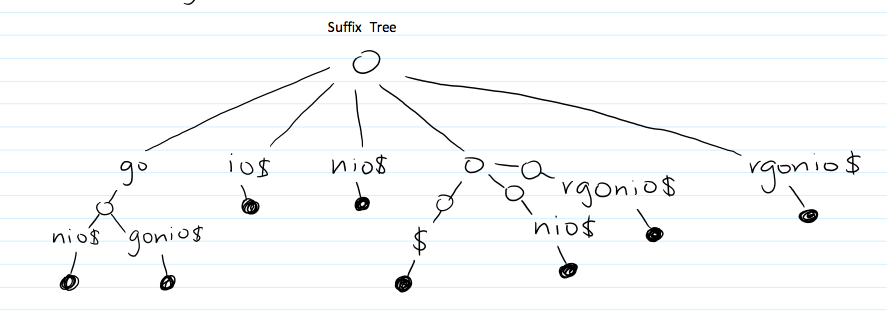 Suffix Tree
go io$ nio$ o rgonio$
rgonio$
nio$ gonio$ $ nio$